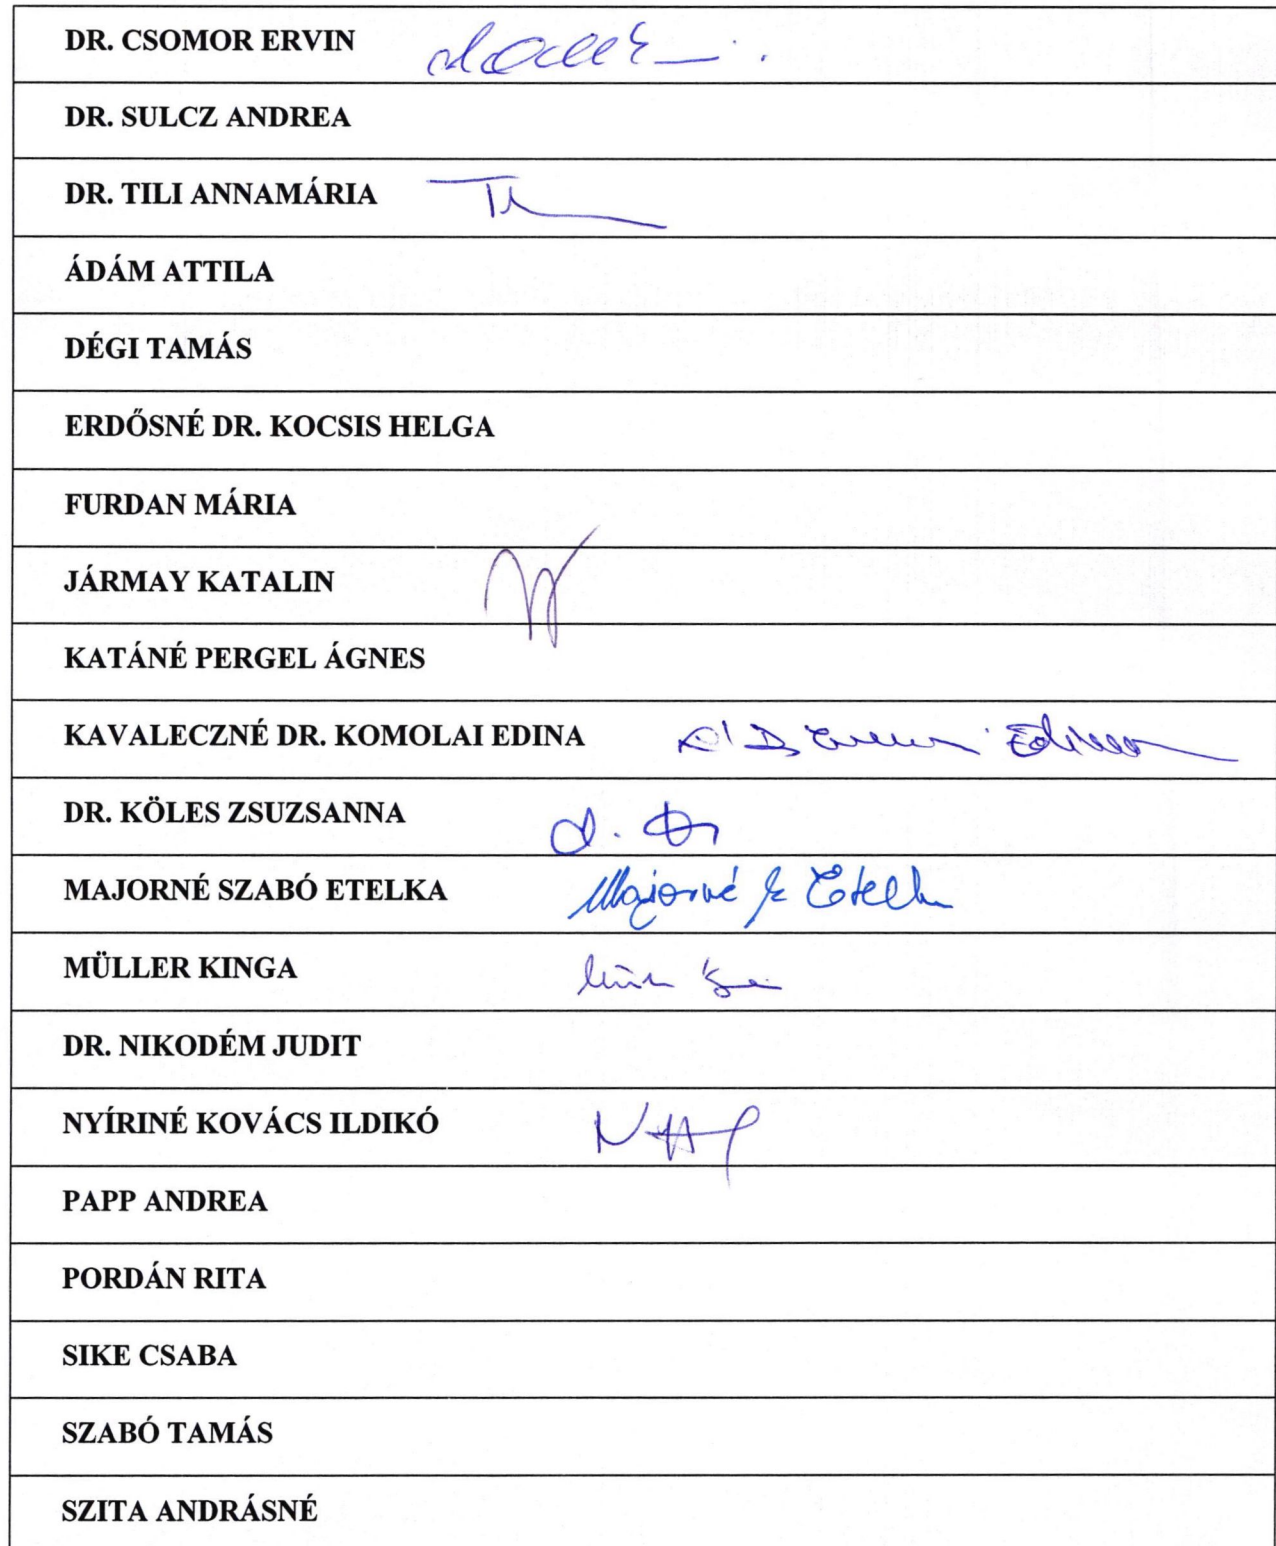 DR. CSOMOR ERVIN
DR. SULCZ ANDREA
DR. TILI ANNAMÁRIA
ÁDÁM ATTILA
DÉGI TAMÁS
ERDŐSNÉ DR. KOCSIS HELGA
FURDAN MÁRIA
JÁRMAY KATALIN
KATÁNÉ PERGEL ÁGNES
KAVALECZNÉ DR. KOMOLAI EDINA
DR. KÖLES ZSUZSANNA
MAJORNÉ SZABÓ ETELKA Majorné
MÜLLER KINGA
DR. NIKODÉM JUDIT
NYÍRINÉ KOVÁCS ILDIKÓ
PAPP ANDREA
PORDÁN RITA
SIKE CSABA
SZABÓ TAMÁS
SZITA ANDRÁSNÉ